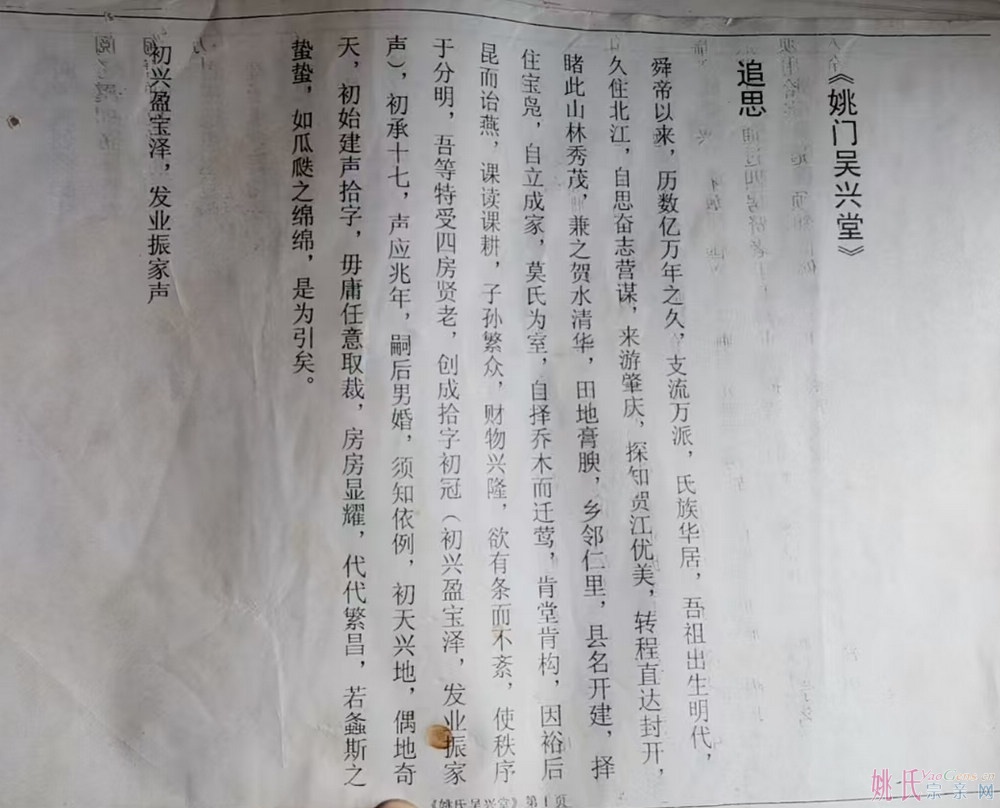 《姚门吴兴堂》
追思
舜帝以来，历数亿万年之久，支流万派，氏族华居，吾祖出生明代，
久住北江，自思奋志营谋，来游肇庆，探知贺江优美，转程直达封开，
睹此山林秀茂，兼之贺水清华，田地膏腴，乡邻仁里，县名开建，择
住宝凫，自立成家，莫氏为室，自择乔木而迁莺，肯堂肯构，因裕后
昆而诒燕，课读课耕，子孙繁众，财物兴隆，欲有条而不紊，使秩序
于分明，吾等特受四房贤老，创成拾字初冠（初兴盈宝泽，发业振家
声），初承十七，声应兆年，嗣后男婚，须知依例，初天兴地，偶地奇
天，初始建声拾字，毋庸任意取裁，房房显耀，代代繁昌，若螽斯之
蛰蛰，如瓜瓞之绵绵，是为引矣。
初兴盈宝泽，发业振家声
《姚氏吴兴堂》第1页
姚氏宗亲网
YaoGens.cn